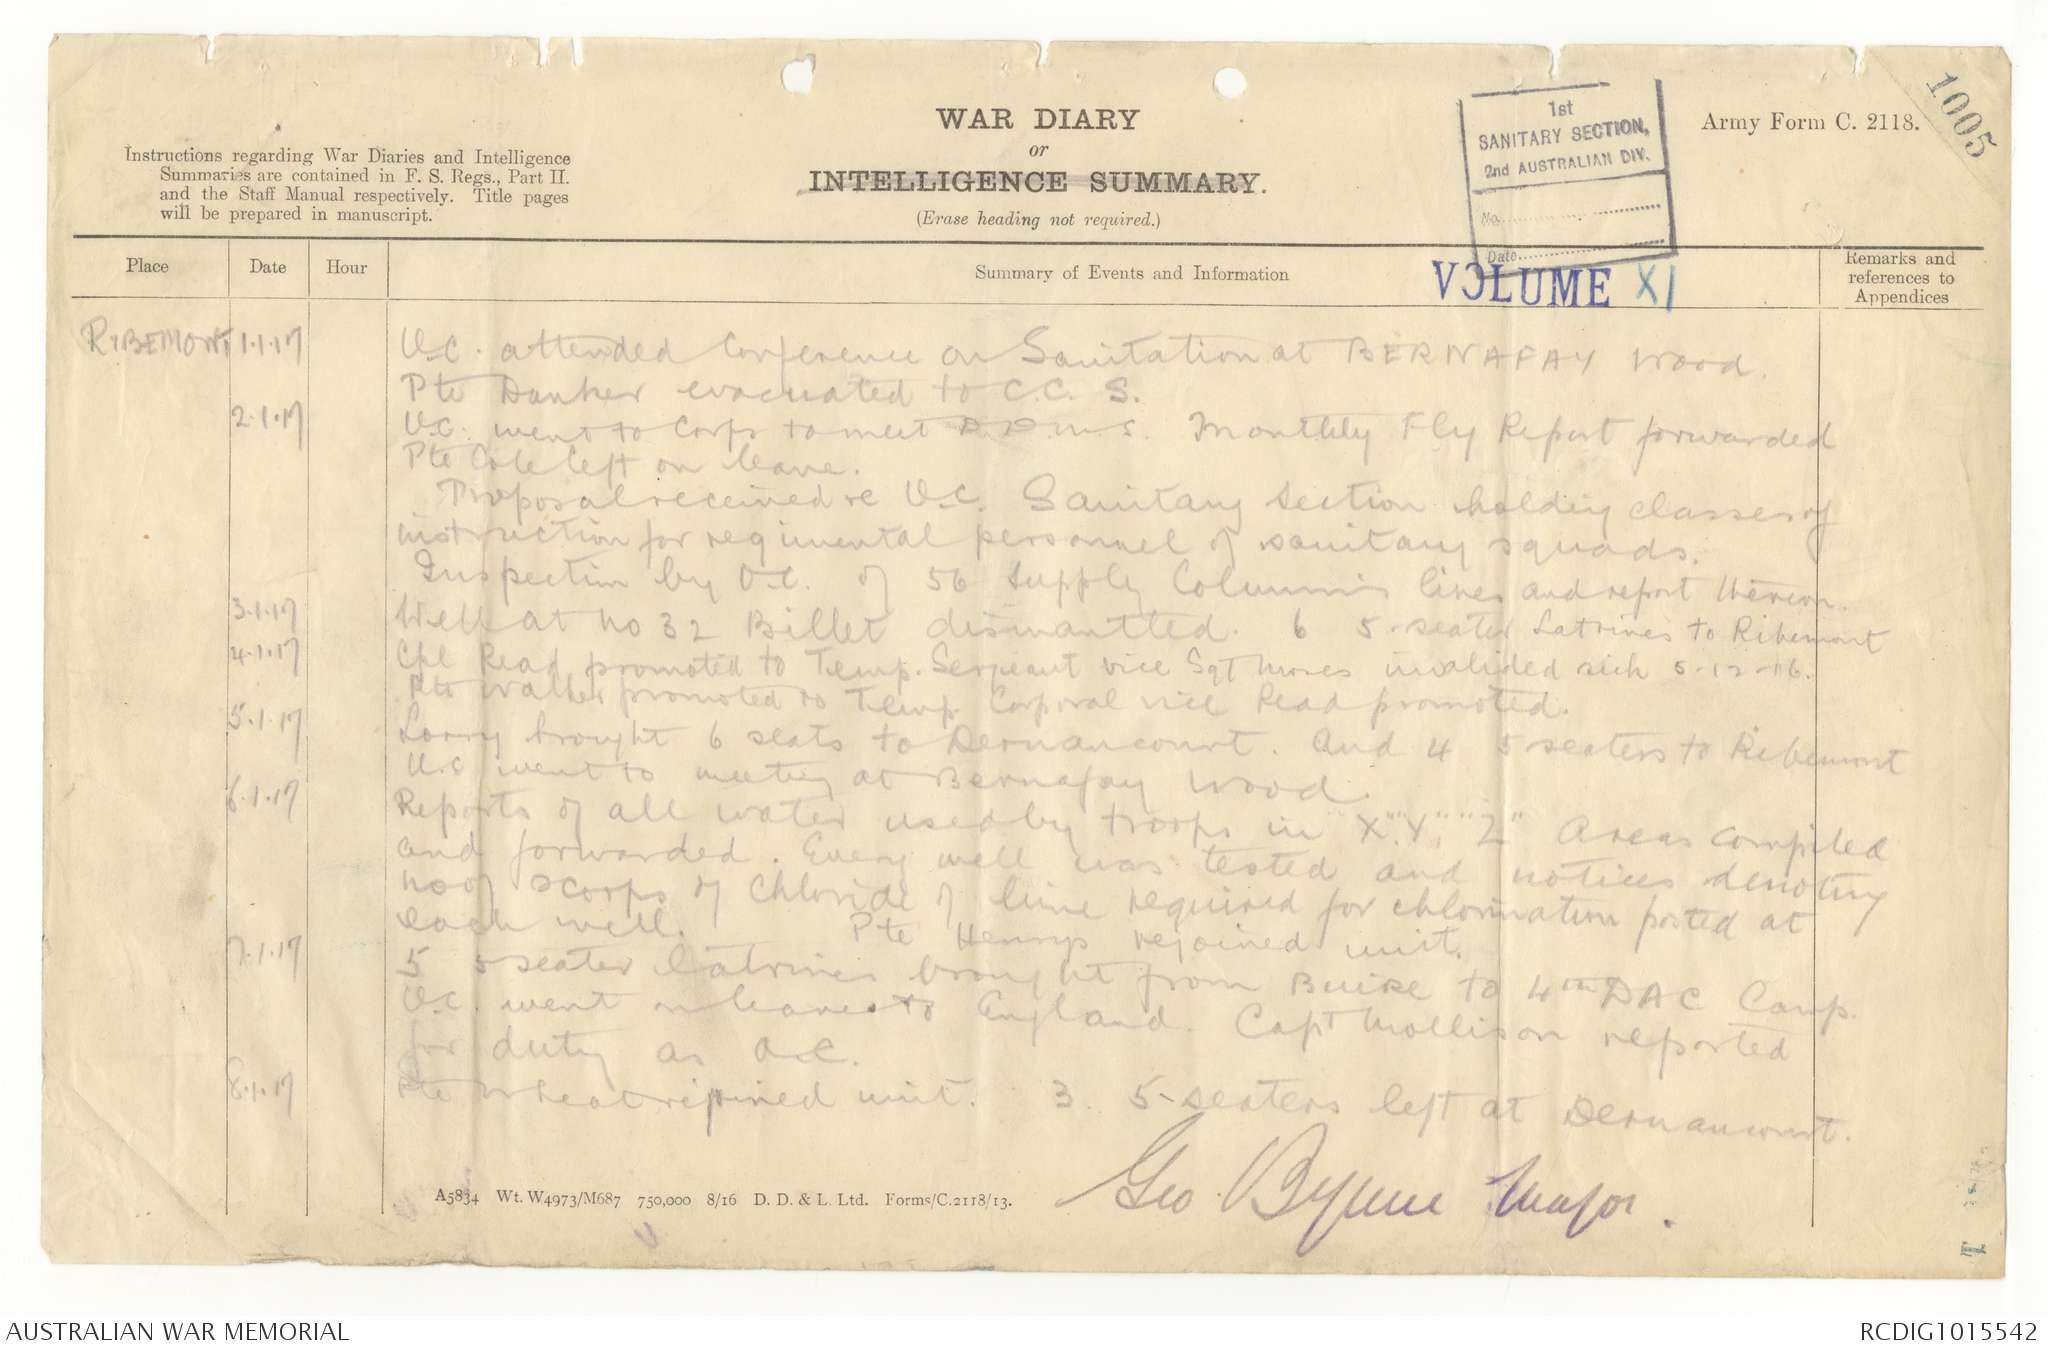 1005
Army Form C. 2118.
WAR DIARY
or
INTELLIGENCE SUMMARY.
(Erase heading not required.)
Instructions regarding War Diaries and Intelligence
Summaries are contained in F. S. Regs., Part II.
and the Staff Manual respectively. Title pages
will be prepared in manuscript.
1st
SANITARY SECTION,
2nd AUSTRALIAN DIV.
No.
Date
VOLUME XI
Place
Date
Hour
Summary of Events and Information
Remarks and
references to
Appendices
RIBEMONT 1.1.17 O.C. attended Conference on Sanitation at BERNAFAY Wood.
Pte Danker evacuated to C.C.S.
2.1.17 O.C. went to Corps to meet D D M S. Monthly Fly Report forwarded
Pte Cole left on leave.
Proposal received re O.C. Sanitary Section holding classes of
instruction for regimental personnel of sanitary squads.
Inspection by O.C. of 56 Supply Column's lines and report thereon.
3.1.17 Well at no 32 Billet dismantled. 6 5-seater Latrines to Ribemont
4.1.17 Cpl Read promoted to Temp. Sergeant vice Sgt Moses invalided sick 5-12-16.
Pte Walker promoted to Temp Corporal vice Read promoted.
5.1.17 Lorry brought 6 seats to Dernancourt. And 4 5 seaters to Ribemont
O.C went to meeting at Bernafay Wood.
6.1.17 Reports of all water used by troops in "X" "Y" "Z" Areas compiled
and forwarded. Every well was tested and notices denoting
no of scoops of Chloride of lime required for chlorination posted at
each well. Pte Henrys rejoined unit.
7.1.17 5 5 seater Latrines brought from Buire to 4th DAC Camp.
O.C. went on leave to England. Capt Mollison reported
for duty as O.C.
8.1.17 Pte Wheat rejoined unit. 3 5-seaters left at Dernancourt.
Geo Byrne Major.
A5834 Wt. W4973/M687 750,000 8/16 D. D. & L. Ltd. Forms/C.2118/13.
1
AUSTRALIAN WAR MEMORIAL
RCDIG1015542